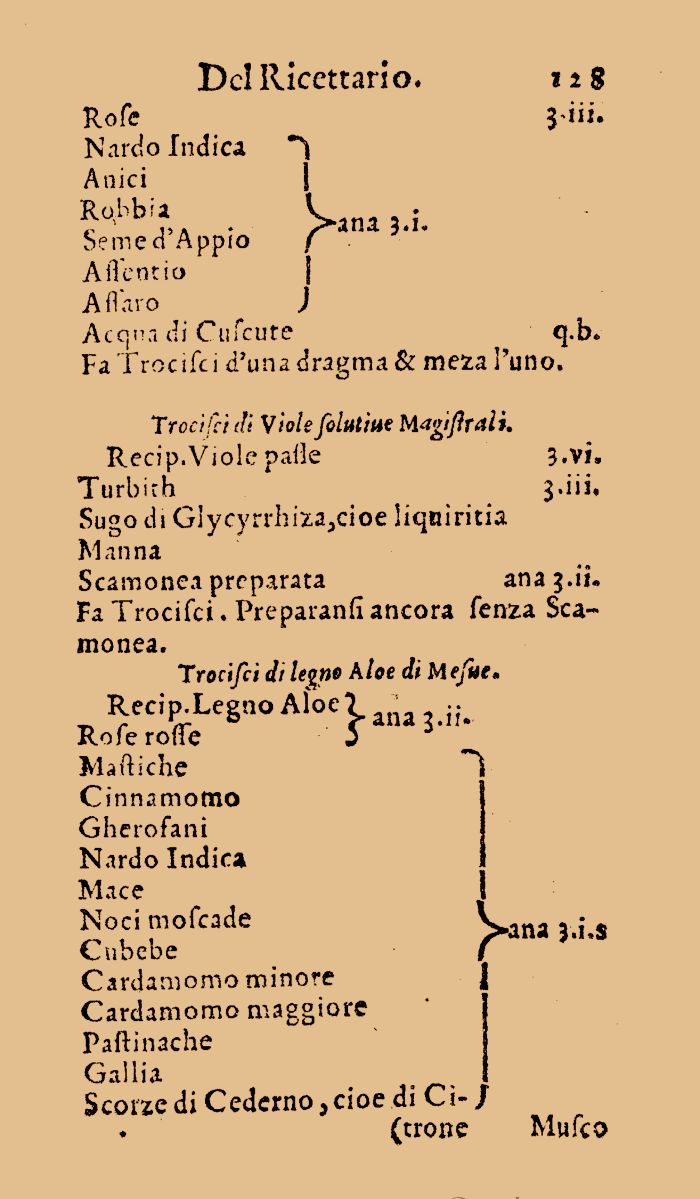 Del Ricettario. 128
Roſe ʒ.iii.
Nardo Indica
Anici
Robbia
Seme d'Appio
Aſſentio
Aſſaro
ana ʒ.i.
Acqua di Cuſcute q.b.
Fa Trociſci d'una dragma & meza l'uno.
Trociſci di Viole ſolutiue Magiſtrali.
Recip.Viole paſſe ʒ.vi.
Turbith ʒ.iii.
Sugo di Glycyrrhiza,cioe liquiritia
Manna
Scamonea preparata ana ʒ.ii.
Fa Trociſci. Preparanſi ancora ſenza Sca-
monea.
Trociſci di legno Aloe di Meſue.
Recip.Legno Aloe
Roſe roſſe
ana ʒ.ii.
Maſtiche
Cinnamomo
Gherofani
Nardo Indica
Mace
Noci moſcade
Cubebe
Cardamomo minore
Cardamomo maggiore
Paſtinache
Gallia
Scorze di Cederno, cioe di Ci-
(trone
ana ʒ.i.s
Muſco